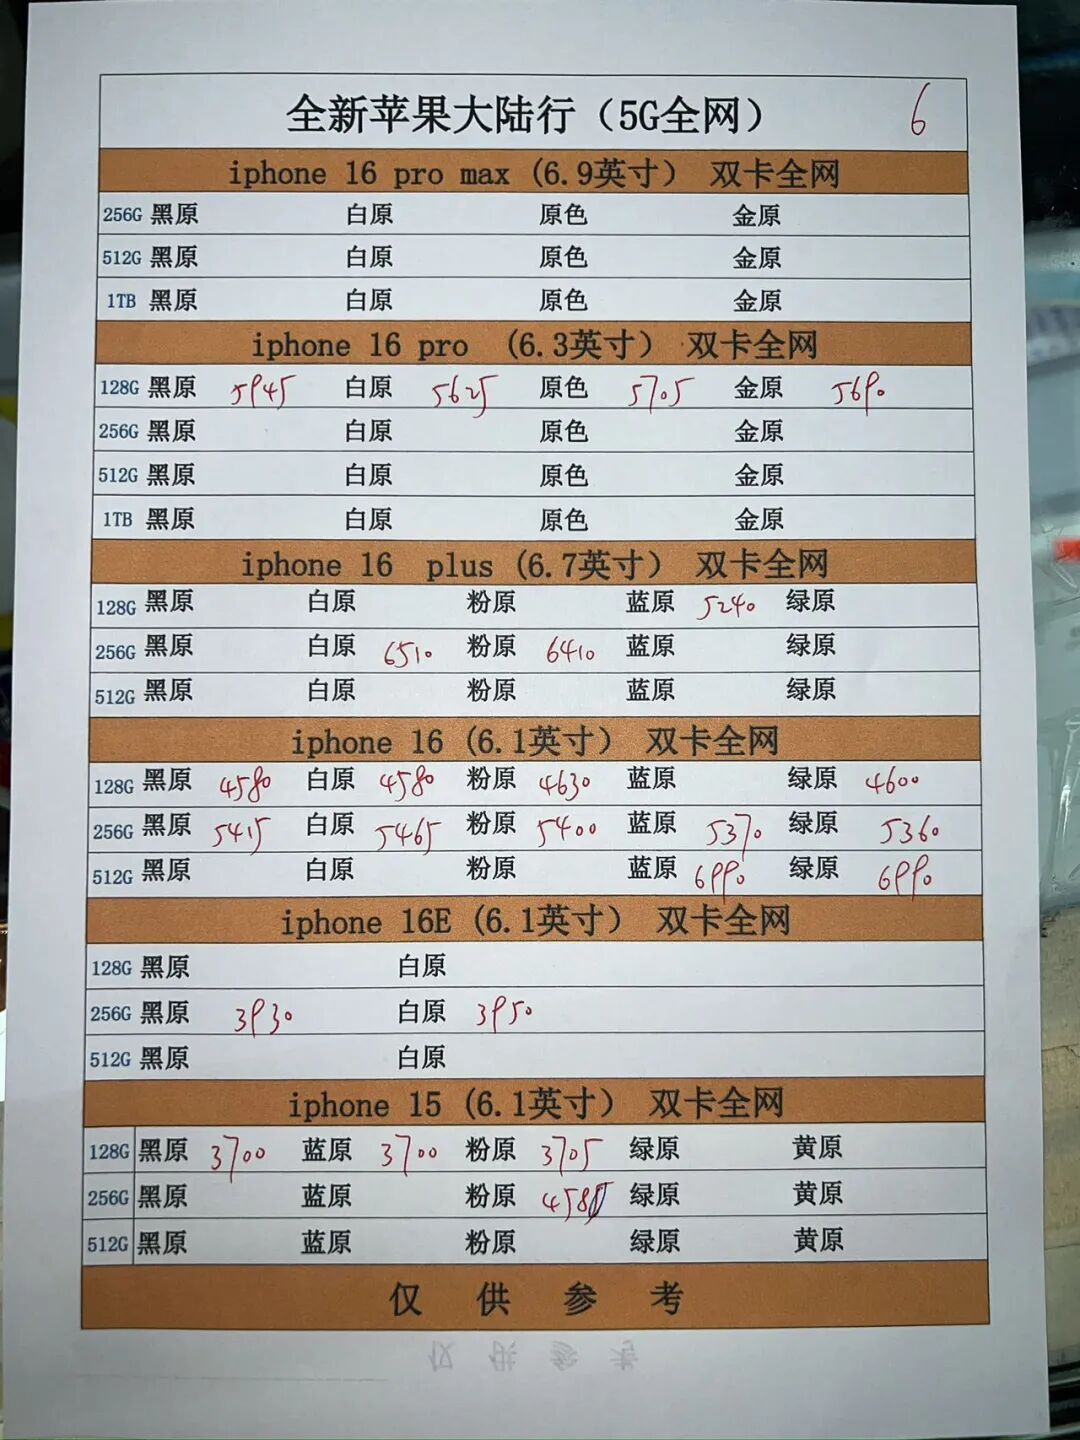 全新苹果大陆行（5G全网） 6
iphone 16 pro max (6.9英寸） 双卡全网
256G 黑原 白原 原色 金原
512G 黑原 白原 原色 金原
1TB 黑原 白原 原色 金原
iphone 16 pro （6.3英寸） 双卡全网
128G 黑原 5945 白原 5625 原色 5705 金原 5690
256G 黑原 白原 原色 金原
512G 黑原 白原 原色 金原
1TB 黑原 白原 原色 金原
iphone 16 plus (6.7英寸） 双卡全网
128G 黑原 白原 粉原 蓝原 5240 绿原
256G 黑原 白原 6510 粉原 6410 蓝原 绿原
512G 黑原 白原 粉原 蓝原 绿原
iphone 16 (6.1英寸） 双卡全网
128G 黑原 4580 白原 4580 粉原 4630 蓝原 绿原 4600
256G 黑原 5415 白原 5465 粉原 5400 蓝原 5370 绿原 5360
512G 黑原 白原 粉原 蓝原 6990 绿原 6990
iphone 16E (6.1英寸） 双卡全网
128G 黑原 白原
256G 黑原 3930 白原 3950
512G 黑原 白原
iphone 15 (6.1英寸） 双卡全网
128G 黑原 3700 蓝原 3700 粉原 3705 绿原 黄原
256G 黑原 蓝原 粉原 绿原 黄原
512G 黑原 蓝原 粉原 绿原 黄原
仅 供 参 考